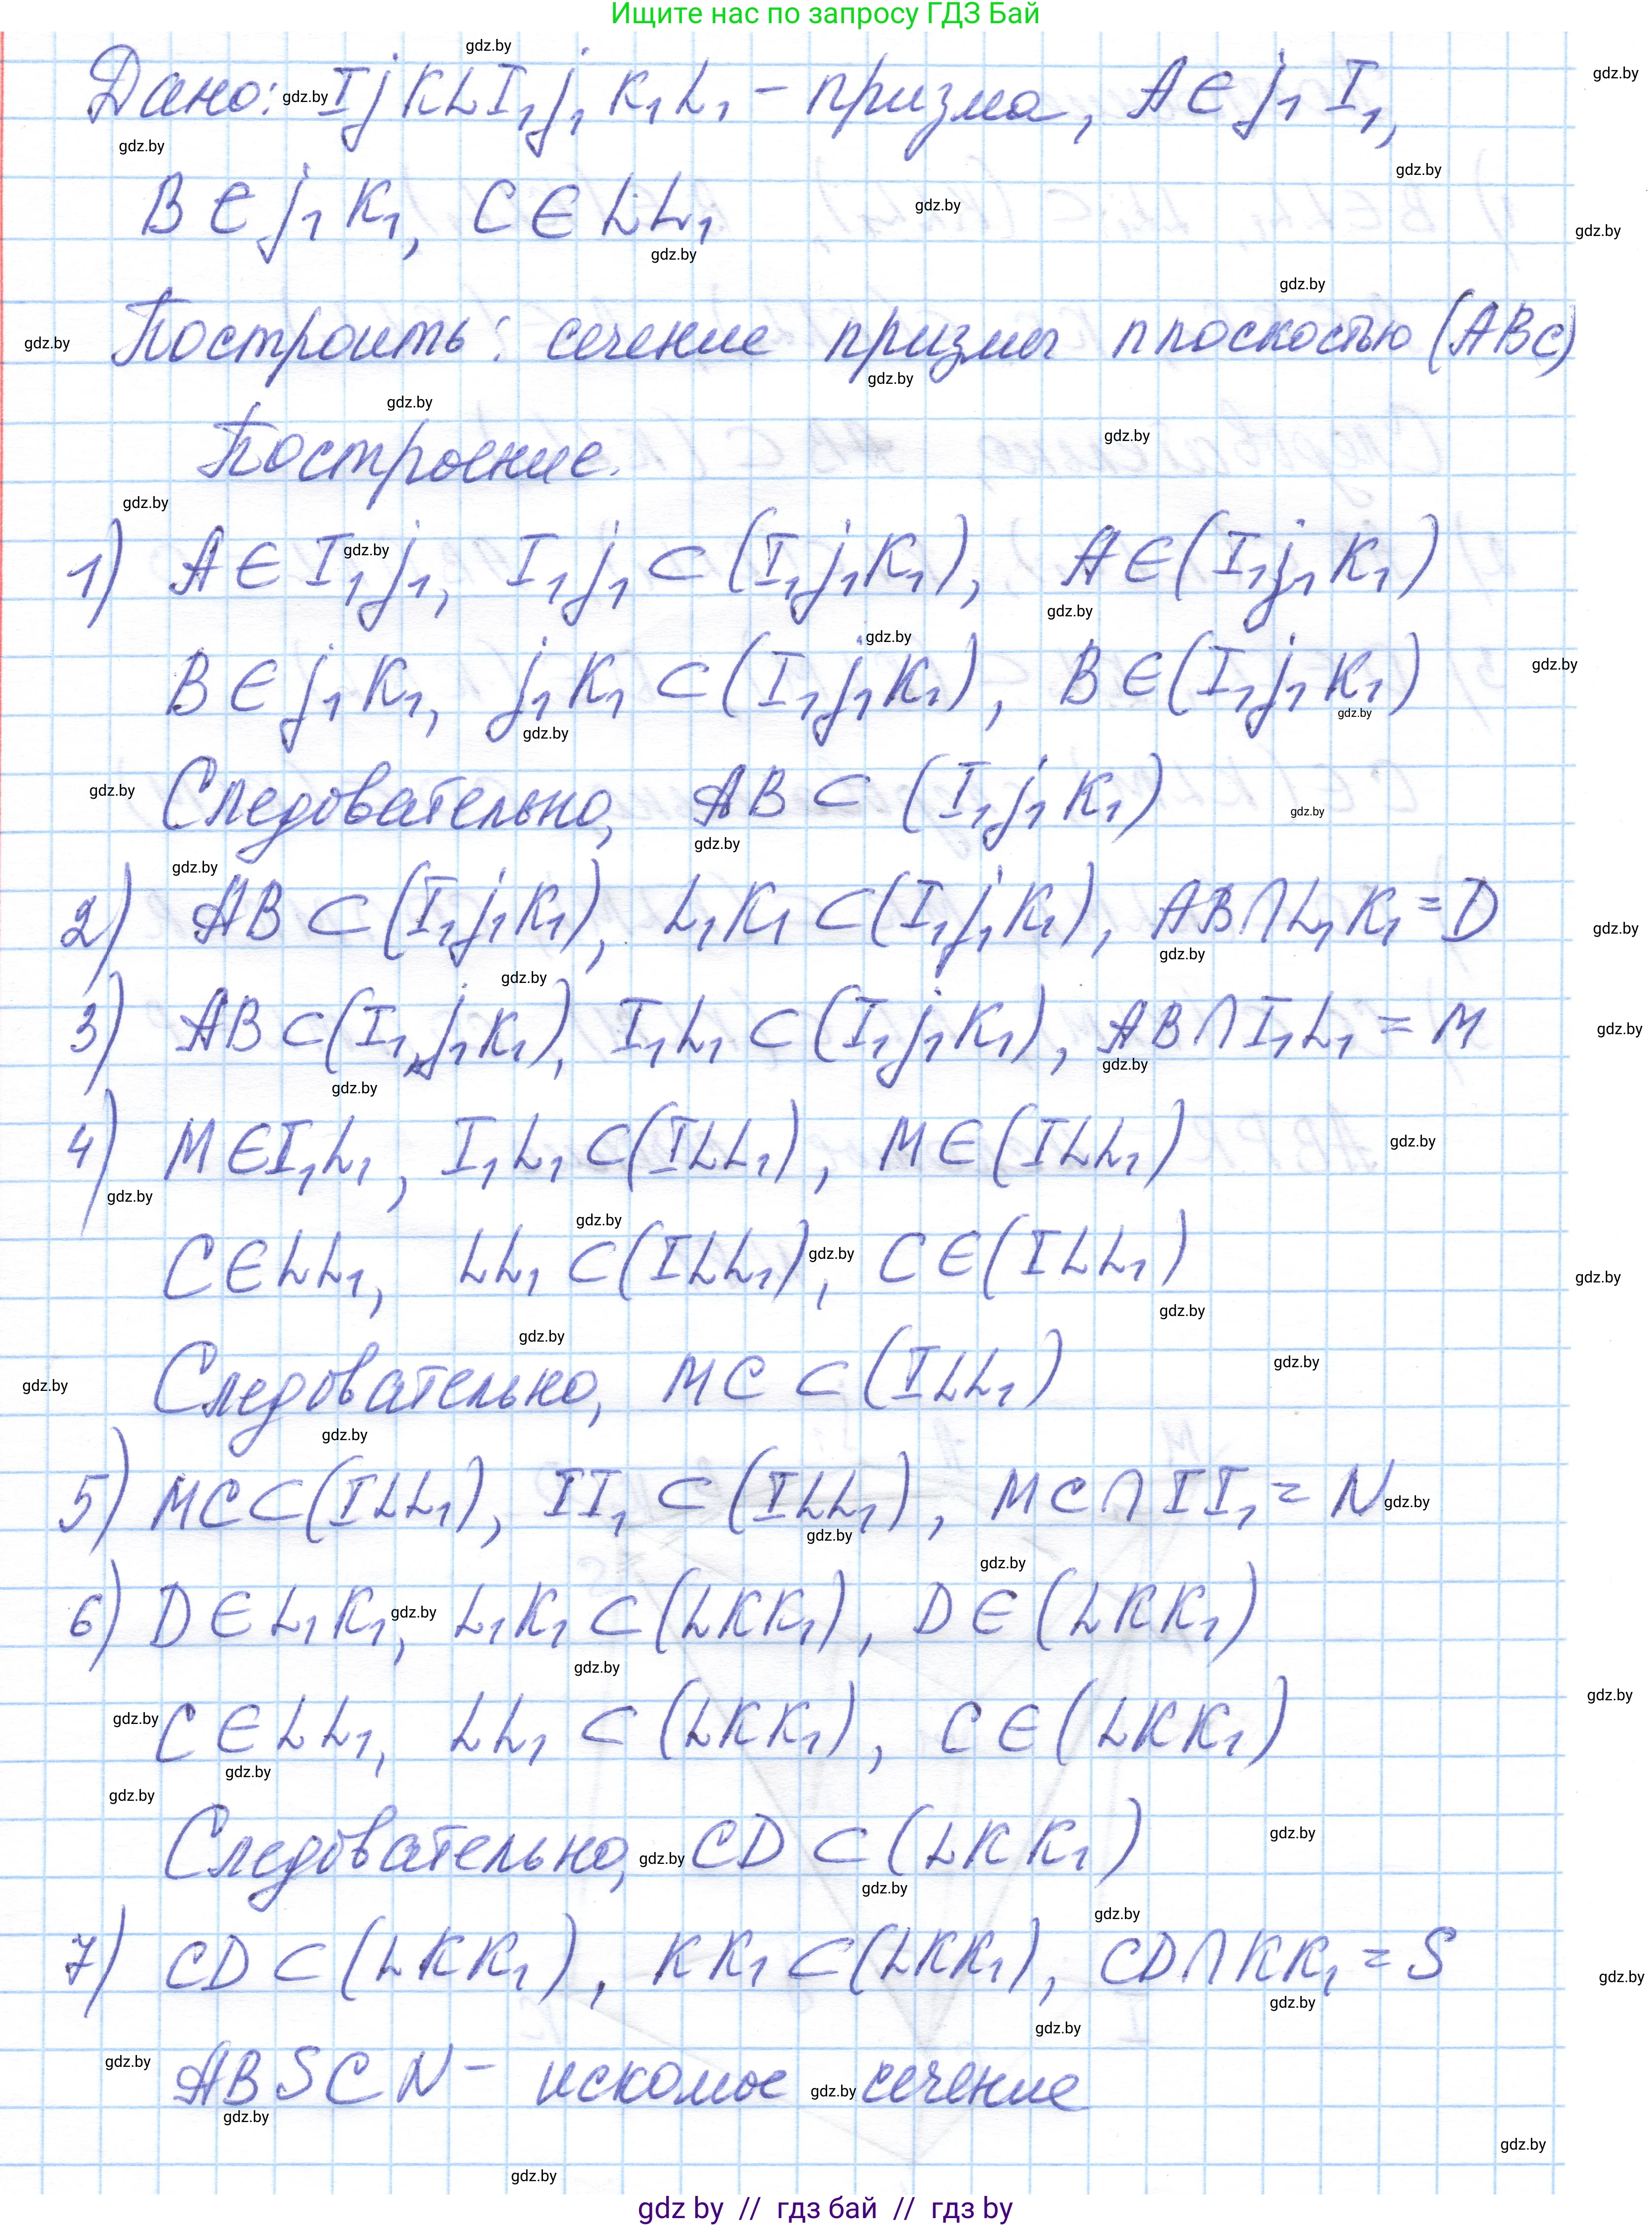 Ищите нас по запросу ГДЗ Бай
Дано: IjKLI₁j₁K₁L₁ – призма, A∈j₁I₁,
B∈j₁K₁, C∈LL₁
Построить: сечение призмы плоскостью (ABC)
Построение.
1) A∈I₁j₁, I₁j₁⊂(I₁j₁K₁), A∈(I₁j₁K₁)
B∈j₁K₁, j₁K₁⊂(I₁j₁K₁), B∈(I₁j₁K₁)
Следовательно, AB⊂(I₁j₁K₁)
2) AB⊂(I₁j₁K₁), L₁K₁⊂(I₁j₁K₁), AB∩L₁K₁=D
3) AB⊂(I₁j₁K₁), I₁L₁⊂(I₁j₁K₁), AB∩I₁L₁=M
4) M∈I₁L₁, I₁L₁⊂(ILL₁), M∈(ILL₁)
C∈LL₁, LL₁⊂(ILL₁), C∈(ILL₁)
Следовательно, MC⊂(ILL₁)
5) MC⊂(ILL₁), II₁⊂(ILL₁), MC∩II₁=N
6) D∈L₁K₁, L₁K₁⊂(LKK₁), D∈(LKK₁)
C∈LL₁, LL₁⊂(LKK₁), C∈(LKK₁)
Следовательно, CD⊂(LKK₁)
7) CD⊂(LKK₁), KK₁⊂(LKK₁), CD∩KK₁=S
ABSCN – искомое сечение
gdz by // гдз бай // гдз by